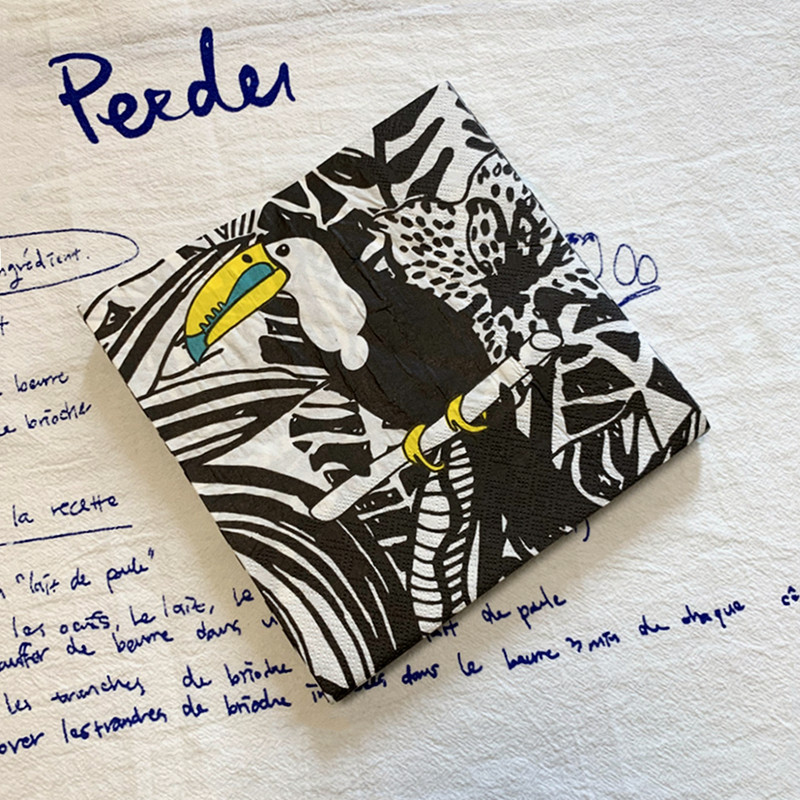 Perdu
ngrédient.
t
beurre
e brioche
la recette
"lait de poule"
les oeufs, le lait, le
auffer de beurre dans u
lait de poule
les tranches de brioche
dans le beurre 3 min du chaque cô
over les tranches de brioche